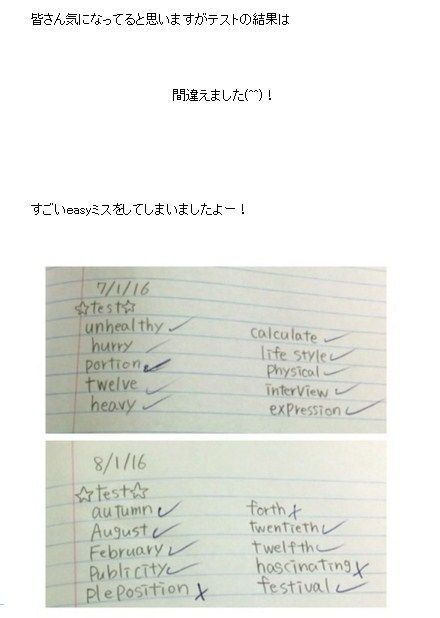 皆さん気になってると思いますがテストの結果は
間違えました(^^)！
すごいeasyミスをしてしまいましたよー！
7/1/16
☆test☆
unhealthy ✓
hurry ✓
portion ✓
twelve ✓
heavy ✓
calculate ✓
life style ✓
physical ✓
interview ✓
expression ✓
8/1/16
☆test☆
autumn ✓
August ✓
February ✓
Publicity ✓
pleposition ✗
forth ✗
twentieth ✓
twelfth ✓
hascinating ✗
festival ✓